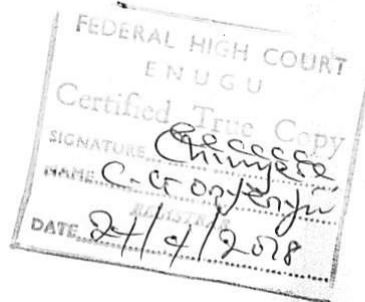 FEDERAL HIGH COURT
ENUGU
Certified True Copy
SIGNATURE
NAME C-G
REGISTRAR
DATE 24/4/2018